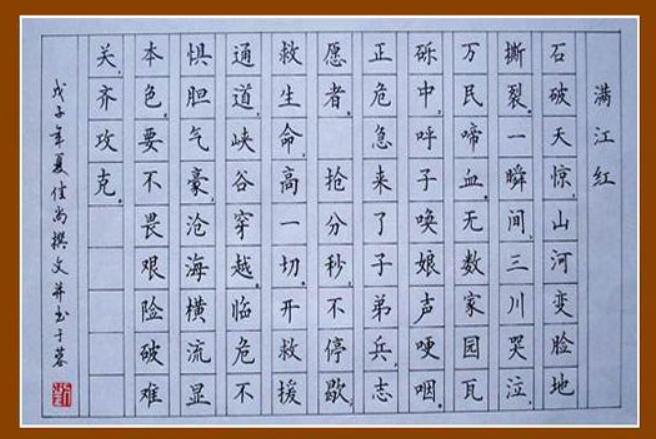 满江红
石破天惊，山河变脸地
撕裂。一瞬间，三川哭泣，
万民啼血。无数家园瓦
砾中，呼子唤娘声哽咽。
正危急来了子弟兵，志
愿者。抢分秒，不停歇，
救生命，高一切。开救援
通道，峡谷穿越。临危不
惧胆气豪，沧海横流显
本色。要不畏艰险破难
关，齐攻克。
戊子年夏佳尚撰文并书于蓉